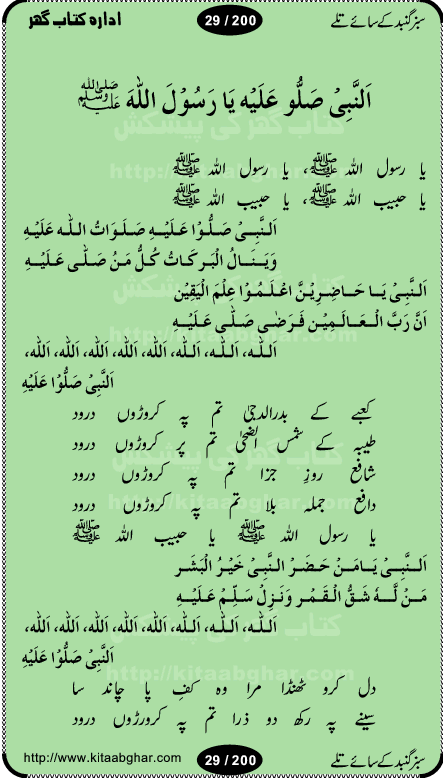 سبز گنبد کے سائے تلے 29 / 200 ادارہ کتاب گھر
اَلنَّبِیْ صَلُّو عَلَیْه یَا رَسُوْلَ اللهَ ﷺ
یا رسول اللہ ﷺ، یا رسول اللہ ﷺ
یا حبیب اللہ ﷺ، یا حبیب اللہ ﷺ
اَلنَّبِیْ صَلُّوْا عَلَیْهِ صَلَوَاتُ اللّٰه عَلَیْهِ
وَیَنَالُ الْبَرَكَاتُ كُلُّ مَنُ صَلّٰی عَلَیْهِ
اَلنَّبِیْ یَا حَاضِرِیْنَ اعْلَمُوْا عِلْمَ الْیَقِیْن
اَنَّ رَبَّ الْعَالَمِیْن فَرَضٰی صَلّٰی عَلَیْهِ
اَللّٰه، اَللّٰه، اَللّٰه، اَللّٰه، اَللّٰه، اَللّٰه، اَللّٰه، اَللّٰه،
اَلنَّبِیْ صَلُّوْا عَلَیْهِ
کعبے کے بدرالدجیٰ تم پہ کروڑوں درود
طیبہ کے شمس الضحیٰ تم پر کروڑوں درود
شافع روزِ جزا تم پہ کروڑوں درود
دافع جملہ بلا تم پہ کروڑوں درود
یا رسول اللہ ﷺ یا حبیب اللہ ﷺ
اَلنَّبِیْ یَامَنْ حَضَرْ النَّبِیْ خَیْرُ الْبَشَر
مَنْ لَّهٗ شَقُّ الْقَمَرُ وَنَزِلُ سَلِّمُ عَلَیْهِ
اَللّٰه، اَللّٰه، اَللّٰه، اَللّٰه، اَللّٰه، اَللّٰه، اَللّٰه، اَللّٰه،
اَلنَّبِیْ صَلُّوْا عَلَیْهِ
دل کرو ٹھنڈا مرا وہ کفِ پا چاند سا
سینے پہ رکھ دو ذرا تم پہ کرورڑوں درود
سبز گنبد کے سائے تلے 29 / 200 http://www.kitaabghar.com
کتاب گھر کی پیشکش
http://kitaabghar.com
کتاب گھر کی پیشکش
http://kitaabghar.com
کتاب گھر کی پیشکش
http://kitaabghar.com
کتاب گھر کی پیشکش
http://kitaabghar.com